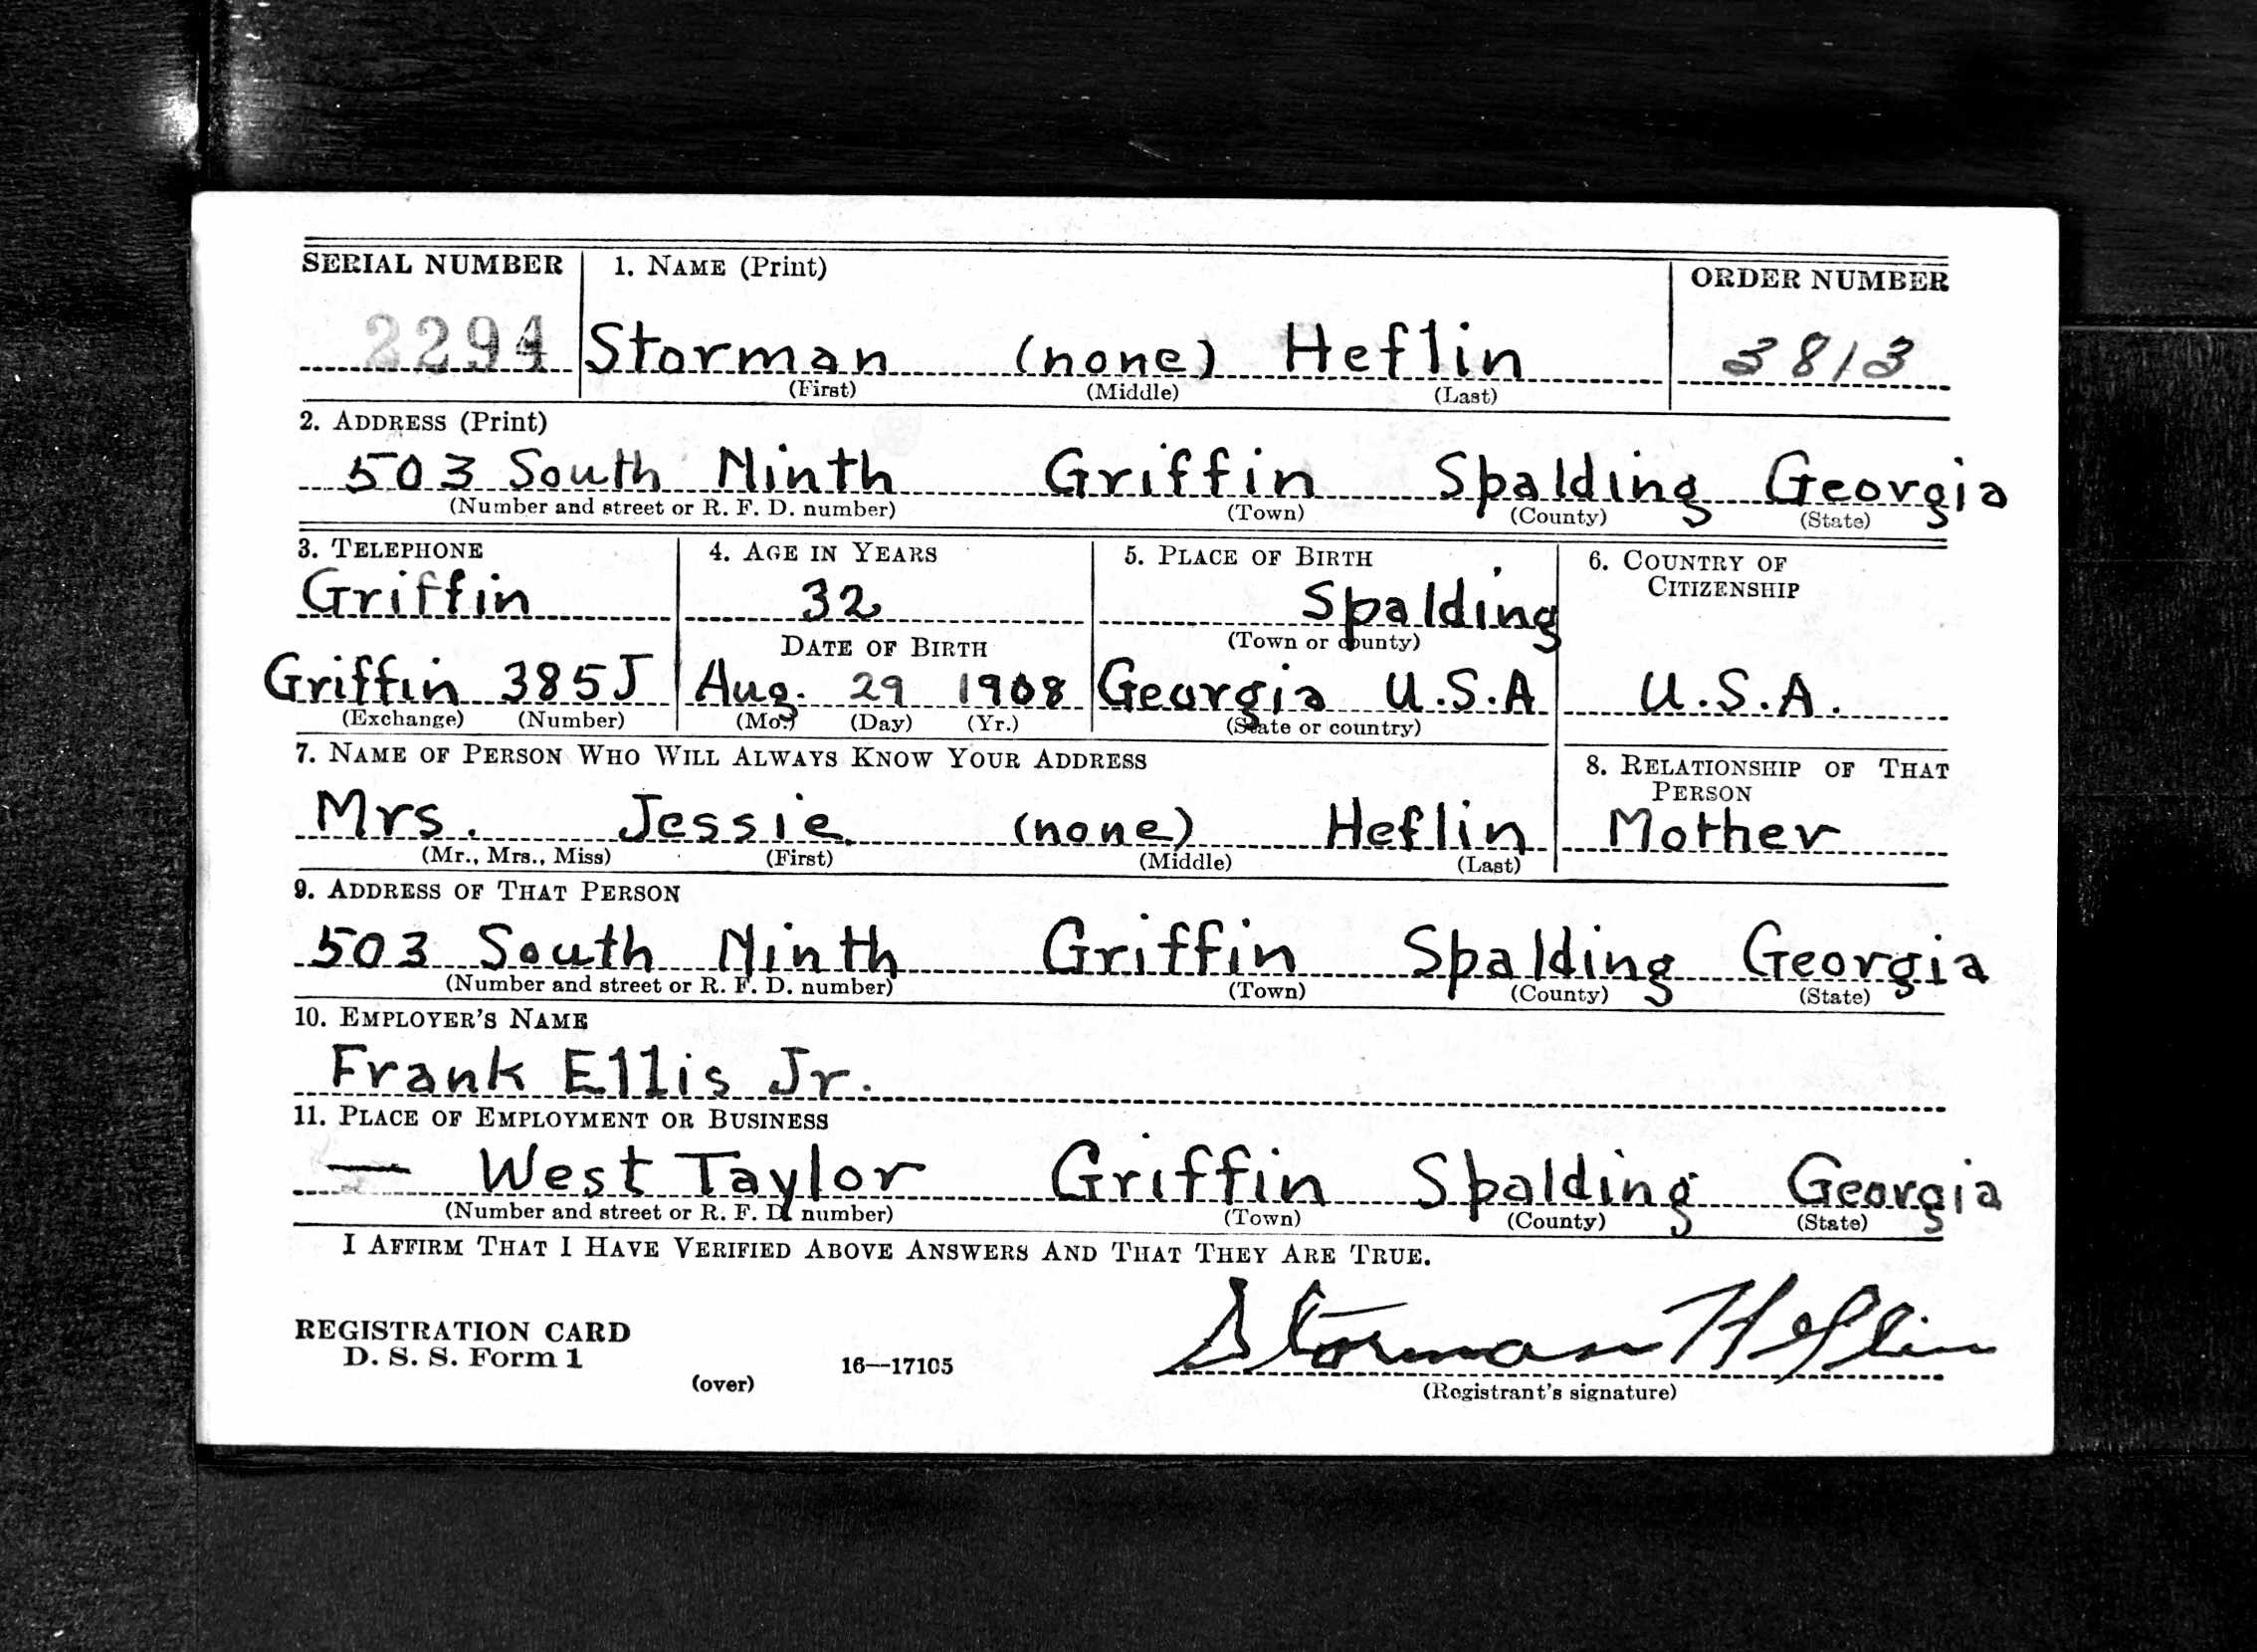 SERIAL NUMBER 1. NAME (Print) ORDER NUMBER
2294 Storman (none) Heflin 3813
(First) (Middle) (Last)
2. ADDRESS (Print)
503 South Ninth Griffin Spalding Georgia
(Number and street or R. F. D. number) (Town) (County) (State)
3. TELEPHONE 4. AGE IN YEARS 5. PLACE OF BIRTH 6. COUNTRY OF
CITIZENSHIP
Griffin 32 Spalding
DATE OF BIRTH (Town or county)
Griffin 385J Aug. 29 1908 Georgia U.S.A U.S.A.
(Exchange) (Number) (Mo.) (Day) (Yr.) (State or country)
7. NAME OF PERSON WHO WILL ALWAYS KNOW YOUR ADDRESS 8. RELATIONSHIP OF THAT
PERSON
Mrs. Jessie (none) Heflin Mother
(Mr., Mrs., Miss) (First) (Middle) (Last)
9. ADDRESS OF THAT PERSON
503 South Ninth Griffin Spalding Georgia
(Number and street or R. F. D. number) (Town) (County) (State)
10. EMPLOYER'S NAME
Frank Ellis Jr.
11. PLACE OF EMPLOYMENT OR BUSINESS
— West Taylor Griffin Spalding Georgia
(Number and street or R. F. D. number) (Town) (County) (State)
I AFFIRM THAT I HAVE VERIFIED ABOVE ANSWERS AND THAT THEY ARE TRUE.
Storman Heflin
REGISTRATION CARD
D. S. S. Form 1 16—17105
(over) (Registrant's signature)